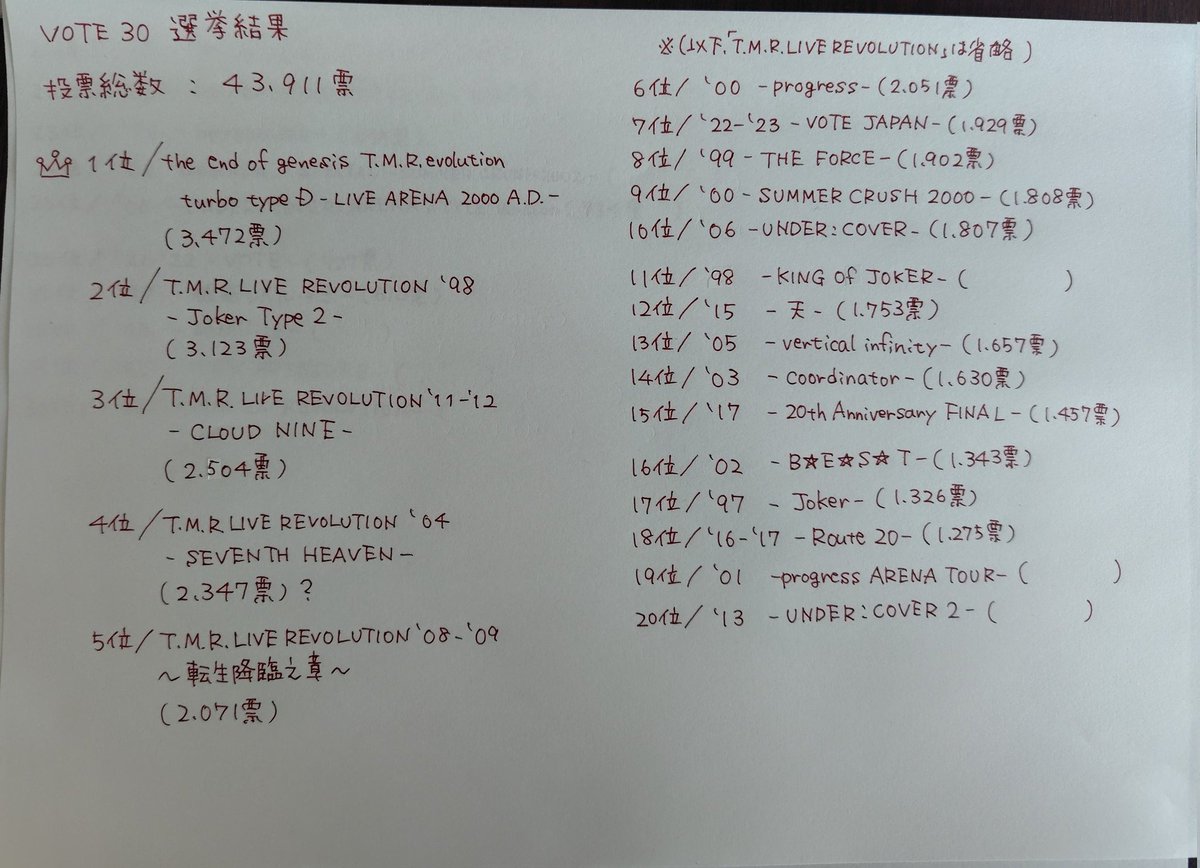 VOTE 30 選挙結果
投票総数 : 43,911票
1位/the end of genesis T.M.R.evolution
turbo type D -LIVE ARENA 2000 A.D.-
(3,472票)
2位/T.M.R. LIVE REVOLUTION '98
- Joker Type 2 -
(3,123票)
3位/T.M.R. LIVE REVOLUTION '11-'12
- CLOUD NINE -
(2.504票)
4位/T.M.R LIVE REVOLUTION '04
- SEVENTH HEAVEN -
(2.347票)?
5位/T.M.R.LIVE REVOLUTION '08-'09
～転生降臨之章～
(2.071票)
※(以下、「T.M.R.LIVE REVOLUTION」は省略)
6位/ '00 -progress-(2.051票)
7位/ '22-'23 -VOTE JAPAN-(1.929票)
8位/ '99 - THE FORCE-(1.902票)
9位/ '00 - SUMMER CRUSH 2000 -(1.808票)
10位/ '06 -UNDER:COVER-(1.807票)
11位/ '98 -KING OF JOKER-( )
12位/ '15 - 天 -(1.753票)
13位/ '05 -vertical infinity-(1.657票)
14位/ '03 -coordinator-(1.630票)
15位/ '17 - 20th Anniversary FINAL -(1.457票)
16位/ '02 -B☆E☆S☆T-(1.343票)
17位/ '97 - Joker-(1.326票)
18位/ '16-'17 -Route 20-(1.275票)
19位/ '01 -progress ARENA TOUR-( )
20位/ '13 -UNDER:COVER 2-( )